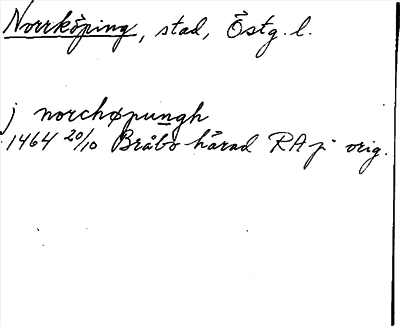 Norrköping, stad, Östg. l.
j norchøpungh
1464 20/10 Bråbo härad RA p orig.